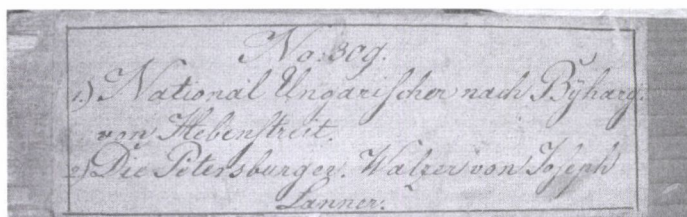 No: 309.
1.) National Ungarischer nach Bÿhary.
von Hebenstreit.
2.) Die Petersburger. Walzer von Joseph
Lanner.